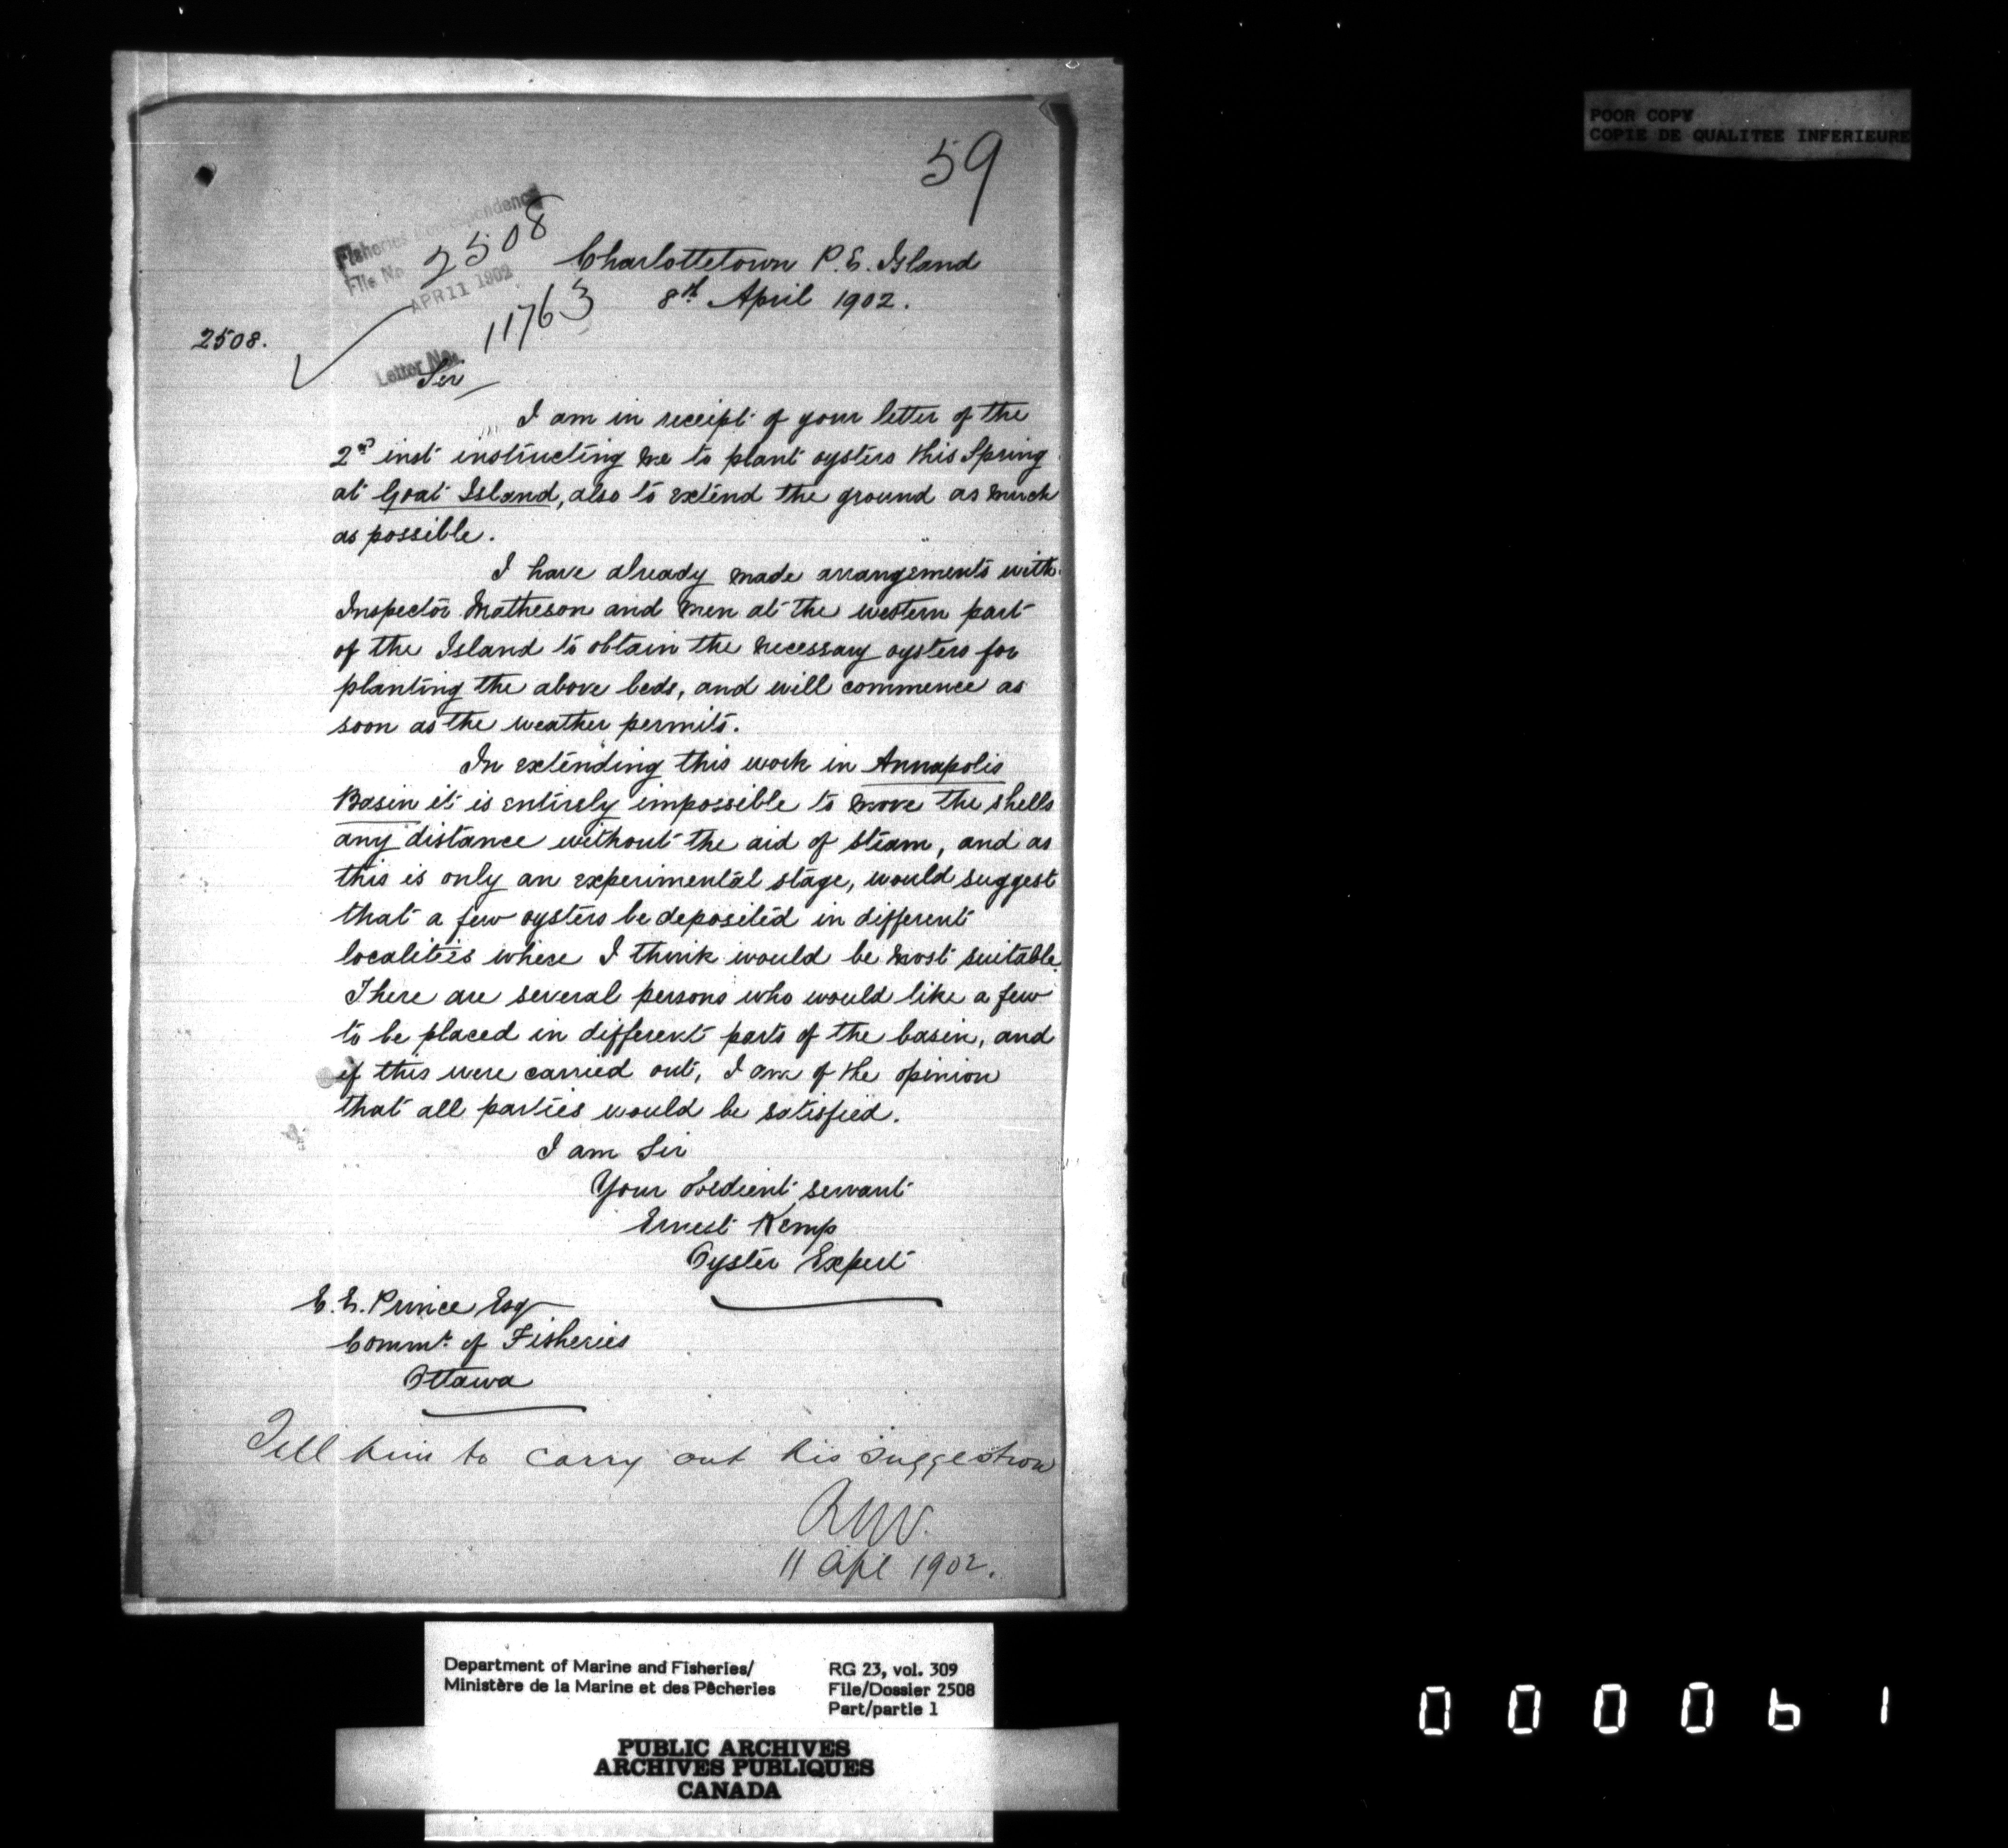 POOR COPY
COPIE DE QUALITEE INFERIEURE
59
Fisheries Correspondence
File No. 2508
APR 11 1902
Charlottetown P.E. Island
8th April 1902.
11763
2508.
Letter No.
Sir
I am in receipt of your letter of the
2nd inst instructing me to plant oysters this Spring
at Goat Island, also to extend the ground as much
as possible.
I have already made arrangements with
Inspector Matheson and men at the western part
of the Island to obtain the necessary oysters for
planting the above beds, and will commence as
soon as the weather permits.
In extending this work in Annapolis
Basin it is entirely impossible to move the shells
any distance without the aid of steam, and as
this is only an experimental stage, would suggest
that a few oysters be deposited in different
localities where I think would be most suitable.
There are several persons who would like a few
to be placed in different parts of the basin, and
if this were carried out, I am of the opinion
that all parties would be satisfied.
I am Sir
Your obedient servant
Ernest Kemp
Oyster Expert
E. E. Prince Esq
Commr. of Fisheries
Ottawa
Tell him to carry out his suggestion
11 Apl 1902.
Department of Marine and Fisheries/
Ministère de la Marine et des Pêcheries
RG 23, vol. 309
File/Dossier 2508
Part/partie 1
PUBLIC ARCHIVES
ARCHIVES PUBLIQUES
CANADA
000061